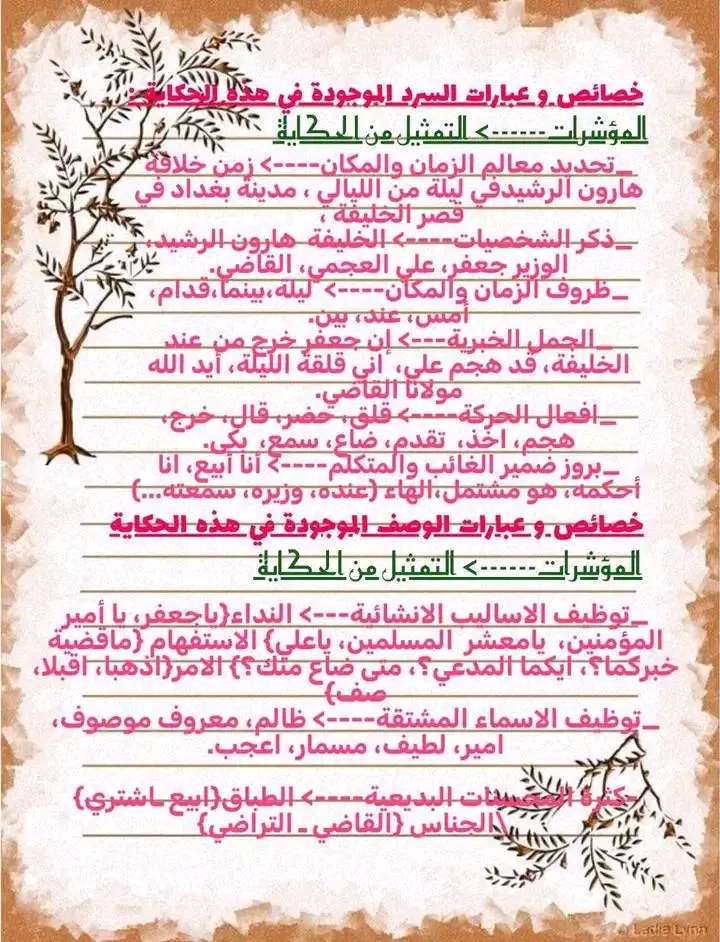 خصائص و عبارات السرد الموجودة في هذه الحكاية :
المؤشرات ------> التمثيل من الحكاية
_تحديد معالم الزمان والمكان----> زمن خلافة
هارون الرشيدفي ليلة من الليالي ، مدينة بغداد في
قصر الخليفة ،
_ذكر الشخصيات----> الخليفة هارون الرشيد،
الوزير جعفر، علي العجمي، القاضي.
_ظروف الزمان والمكان----> ليلة،بينما،قدام،
أمس، عند، بين.
_الجمل الخبرية---> إن جعفر خرج من عند
الخليفة، قد هجم علي، اني قلقة الليلة، أيد الله
مولانا القاضي.
_افعال الحركة----> قلق، حضر، قال، خرج،
هجم، اخذ، تقدم، ضاع، سمع، بكى.
_بروز ضمير الغائب والمتكلم----> أنا أبيع، انا
أحكمه، هو مشتمل،الهاء (عنده، وزيره، سمعته...)
خصائص و عبارات الوصف الموجودة في هذه الحكاية
المؤشرات ------> التمثيل من الحكاية
_توظيف الاساليب الانشائية---> النداء{ياجعفر، يا أمير
المؤمنين، يامعشر المسلمين، ياعلي} الاستفهام {ماقضية
خبركما؟، ايكما المدعي؟، متى ضاع منك؟} الامر{اذهبا، اقبلا،
صف}
_توظيف الاسماء المشتقة----> ظالم، معروف موصوف،
امير، لطيف، مسمار، اعجب.
-كثرة المحسنات البديعية----> الطباق{ابيع ـ اشتري}
\الجناس {القاضي ـ التراضي}
© Ladie Lynn